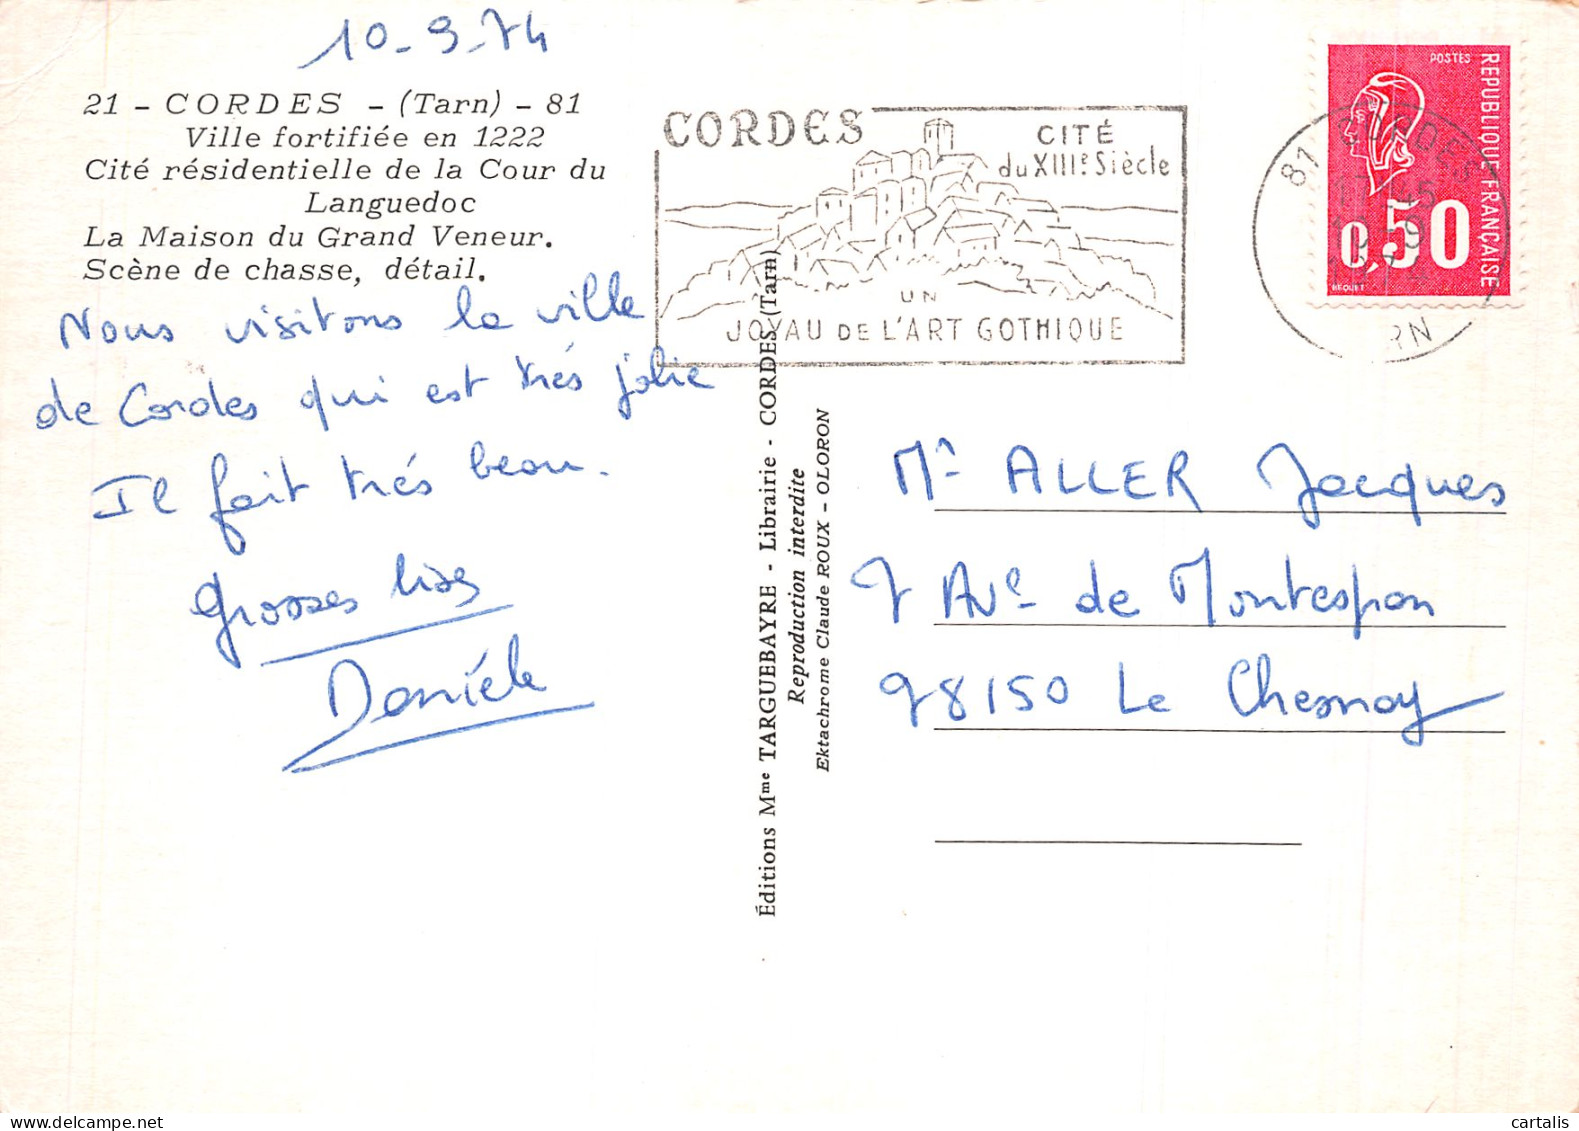 10-9-74
21 - CORDES - (Tarn) - 81
Ville fortifiée en 1222
Cité résidentielle de la Cour du
Languedoc
La Maison du Grand Veneur.
Scène de chasse, détail.
Nous visitons la ville
de Cordes qui est très jolie
Il fait très beau.
Grosses bises
Danièle
CORDES
CITÉ
du XIIIe Siècle
UN
JOYAU DE L'ART GOTHIQUE
Éditions Mme TARGUEBAYRE - Librairie - CORDES (Tarn)
Reproduction interdite
Ektachrome Claude ROUX - OLORON
POSTES
RÉPUBLIQUE FRANÇAISE
0,50
BEQUET
81 CORDES
Mr ALLER Jacques
7 Ave de Montespan
78150 Le Chesnay
cartalis